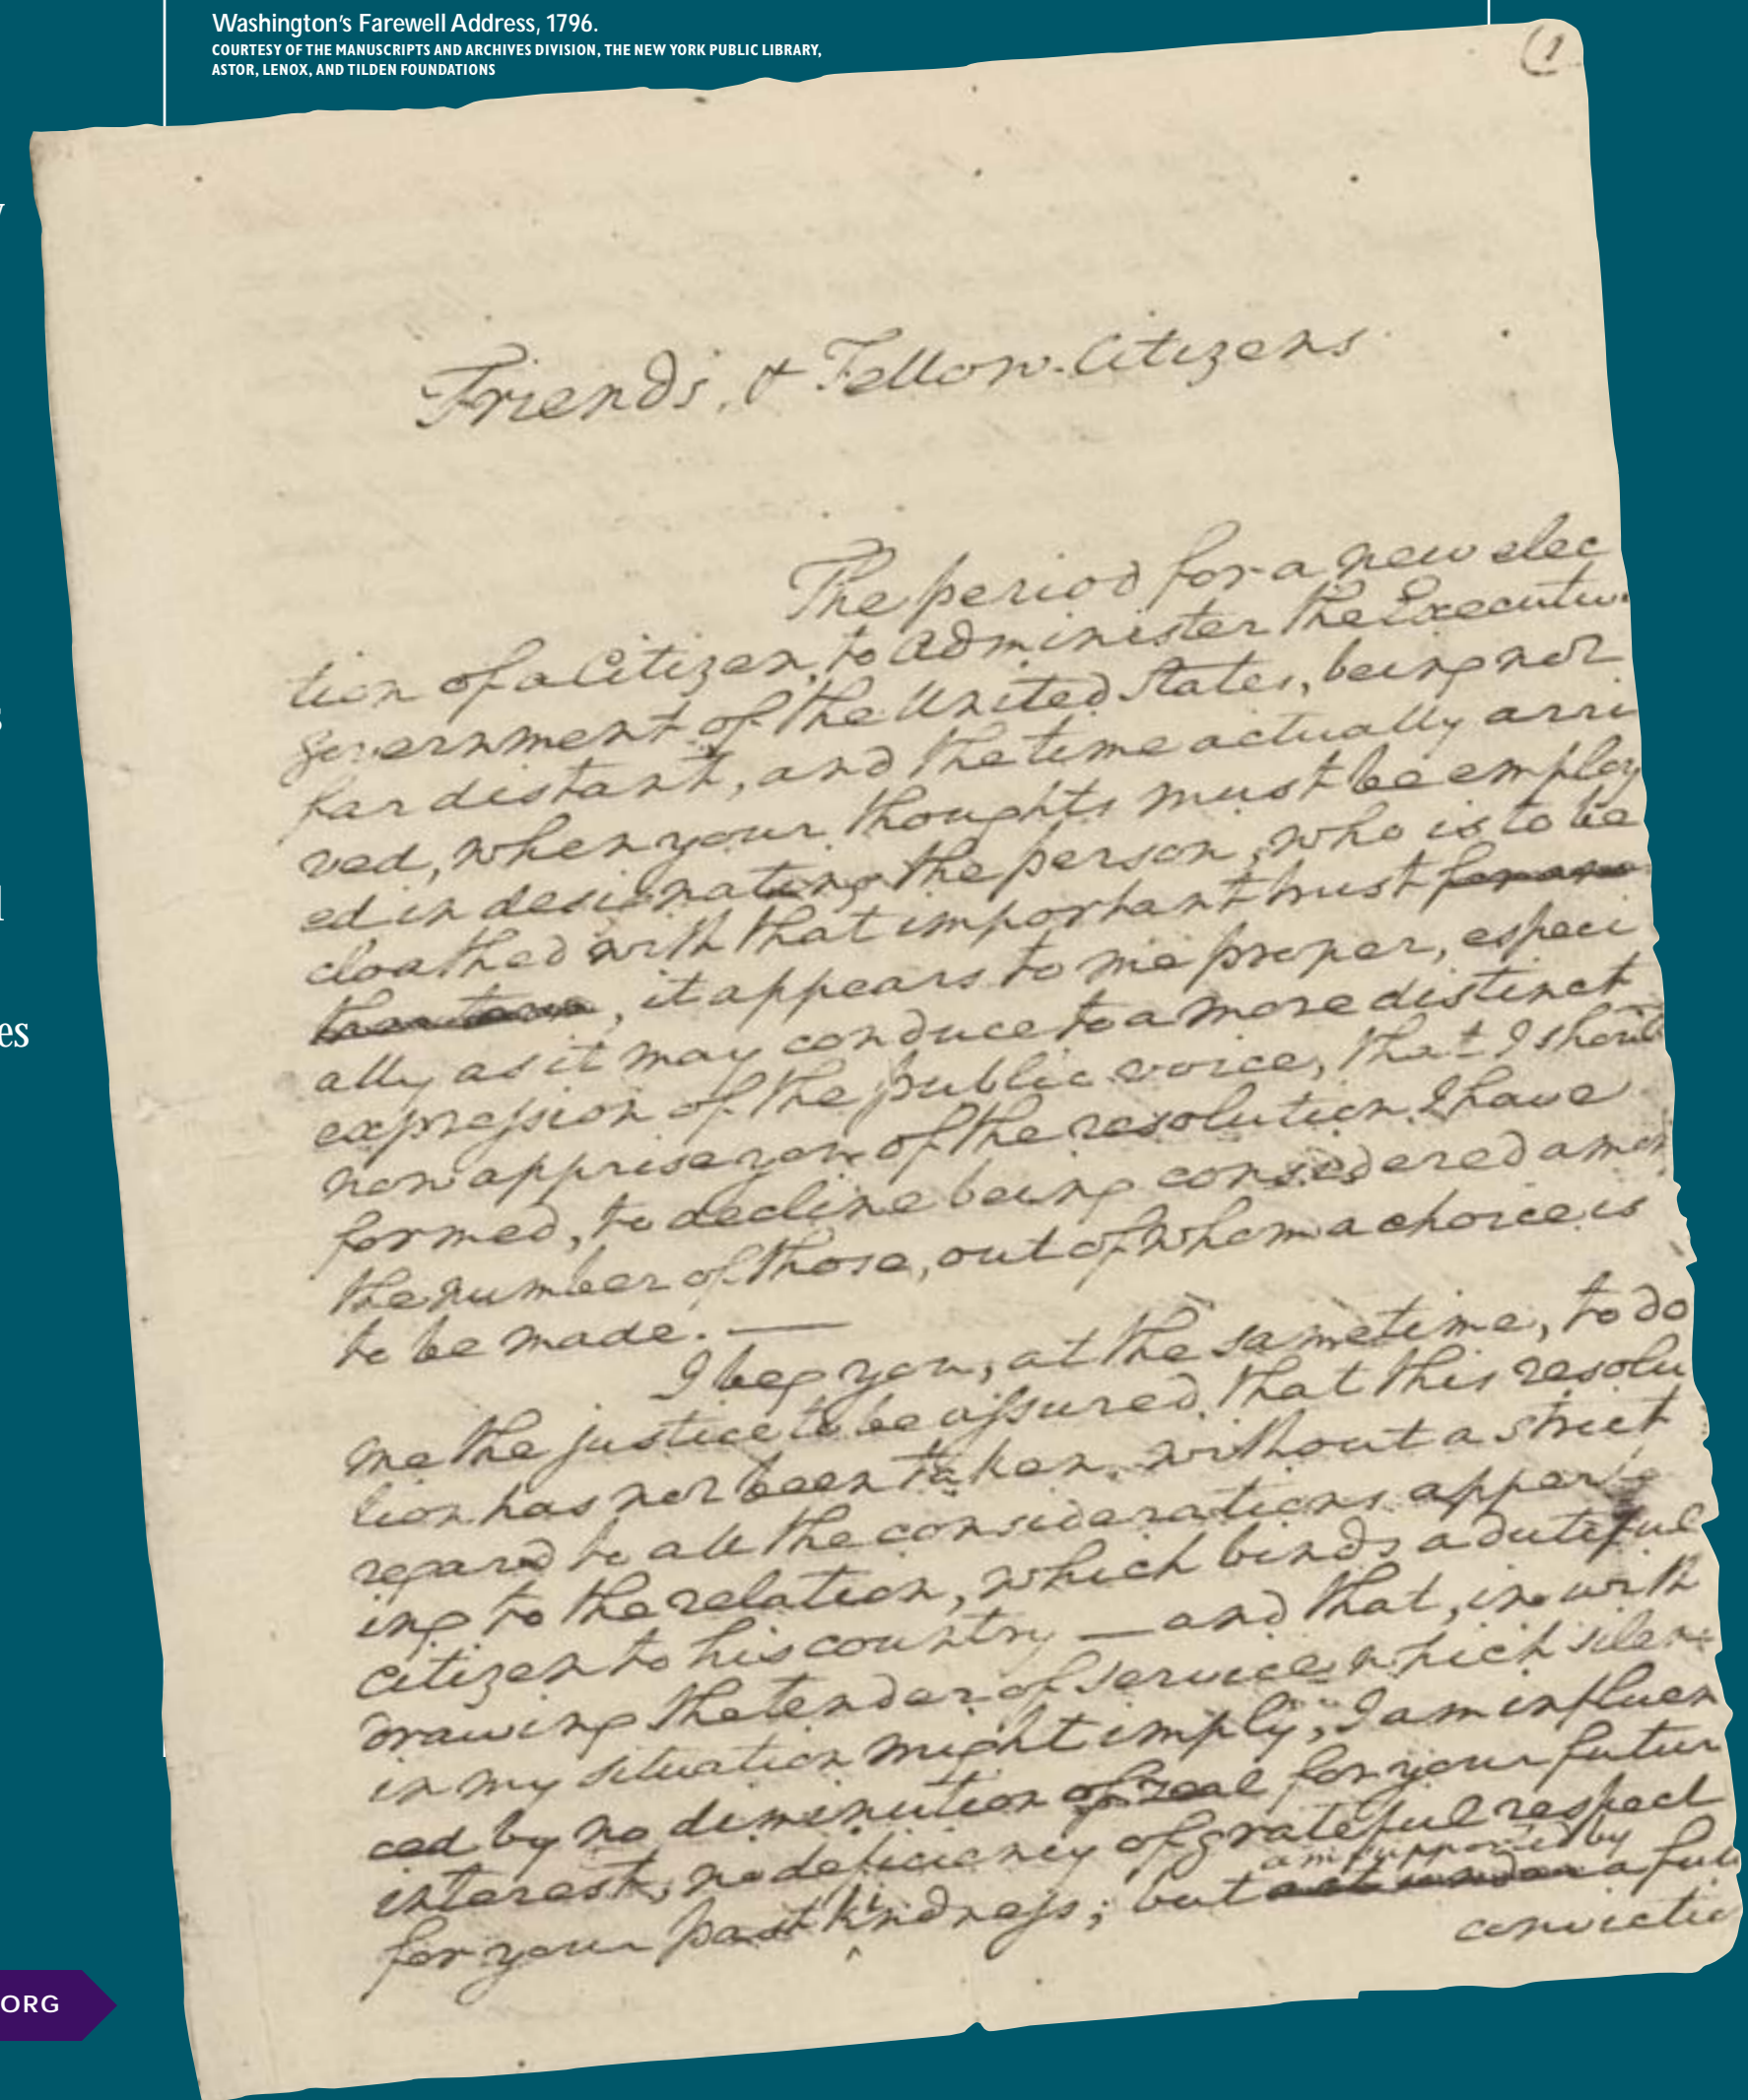 Washington's Farewell Address, 1796.
COURTESY OF THE MANUSCRIPTS AND ARCHIVES DIVISION, THE NEW YORK PUBLIC LIBRARY,
ASTOR, LENOX, AND TILDEN FOUNDATIONS
(1
Friends, & Fellow-Citizens
The period for a new elec
tion of a Citizen, to administer the Executive
government of the United States, being not
far distant, and the time actually arri
ved, when your thoughts must be employ
ed in designating the person, who is to be
cloathed with that important trust
, it appears to me proper, especi
ally as it may conduce to a more distinct
expression of the public voice, that I should
now apprise you of the resolution I have
formed, to decline being considered among
the number of those, out of whom a choice is
to be made. —
I beg you, at the sametime, to do
me the justice to be assured, that this resolu
tion has not been taken, without a strict
regard to all the considerations appertain
ing to the relation, which binds a dutiful
citizen to his country — and that, in with
drawing the tender of service which silence
in my situation might imply, I am influen
ced by no diminution of zeal for your future
interest, no deficiency of grateful respect
for your past kindness; but am supported by a full
conviction
es
ORG